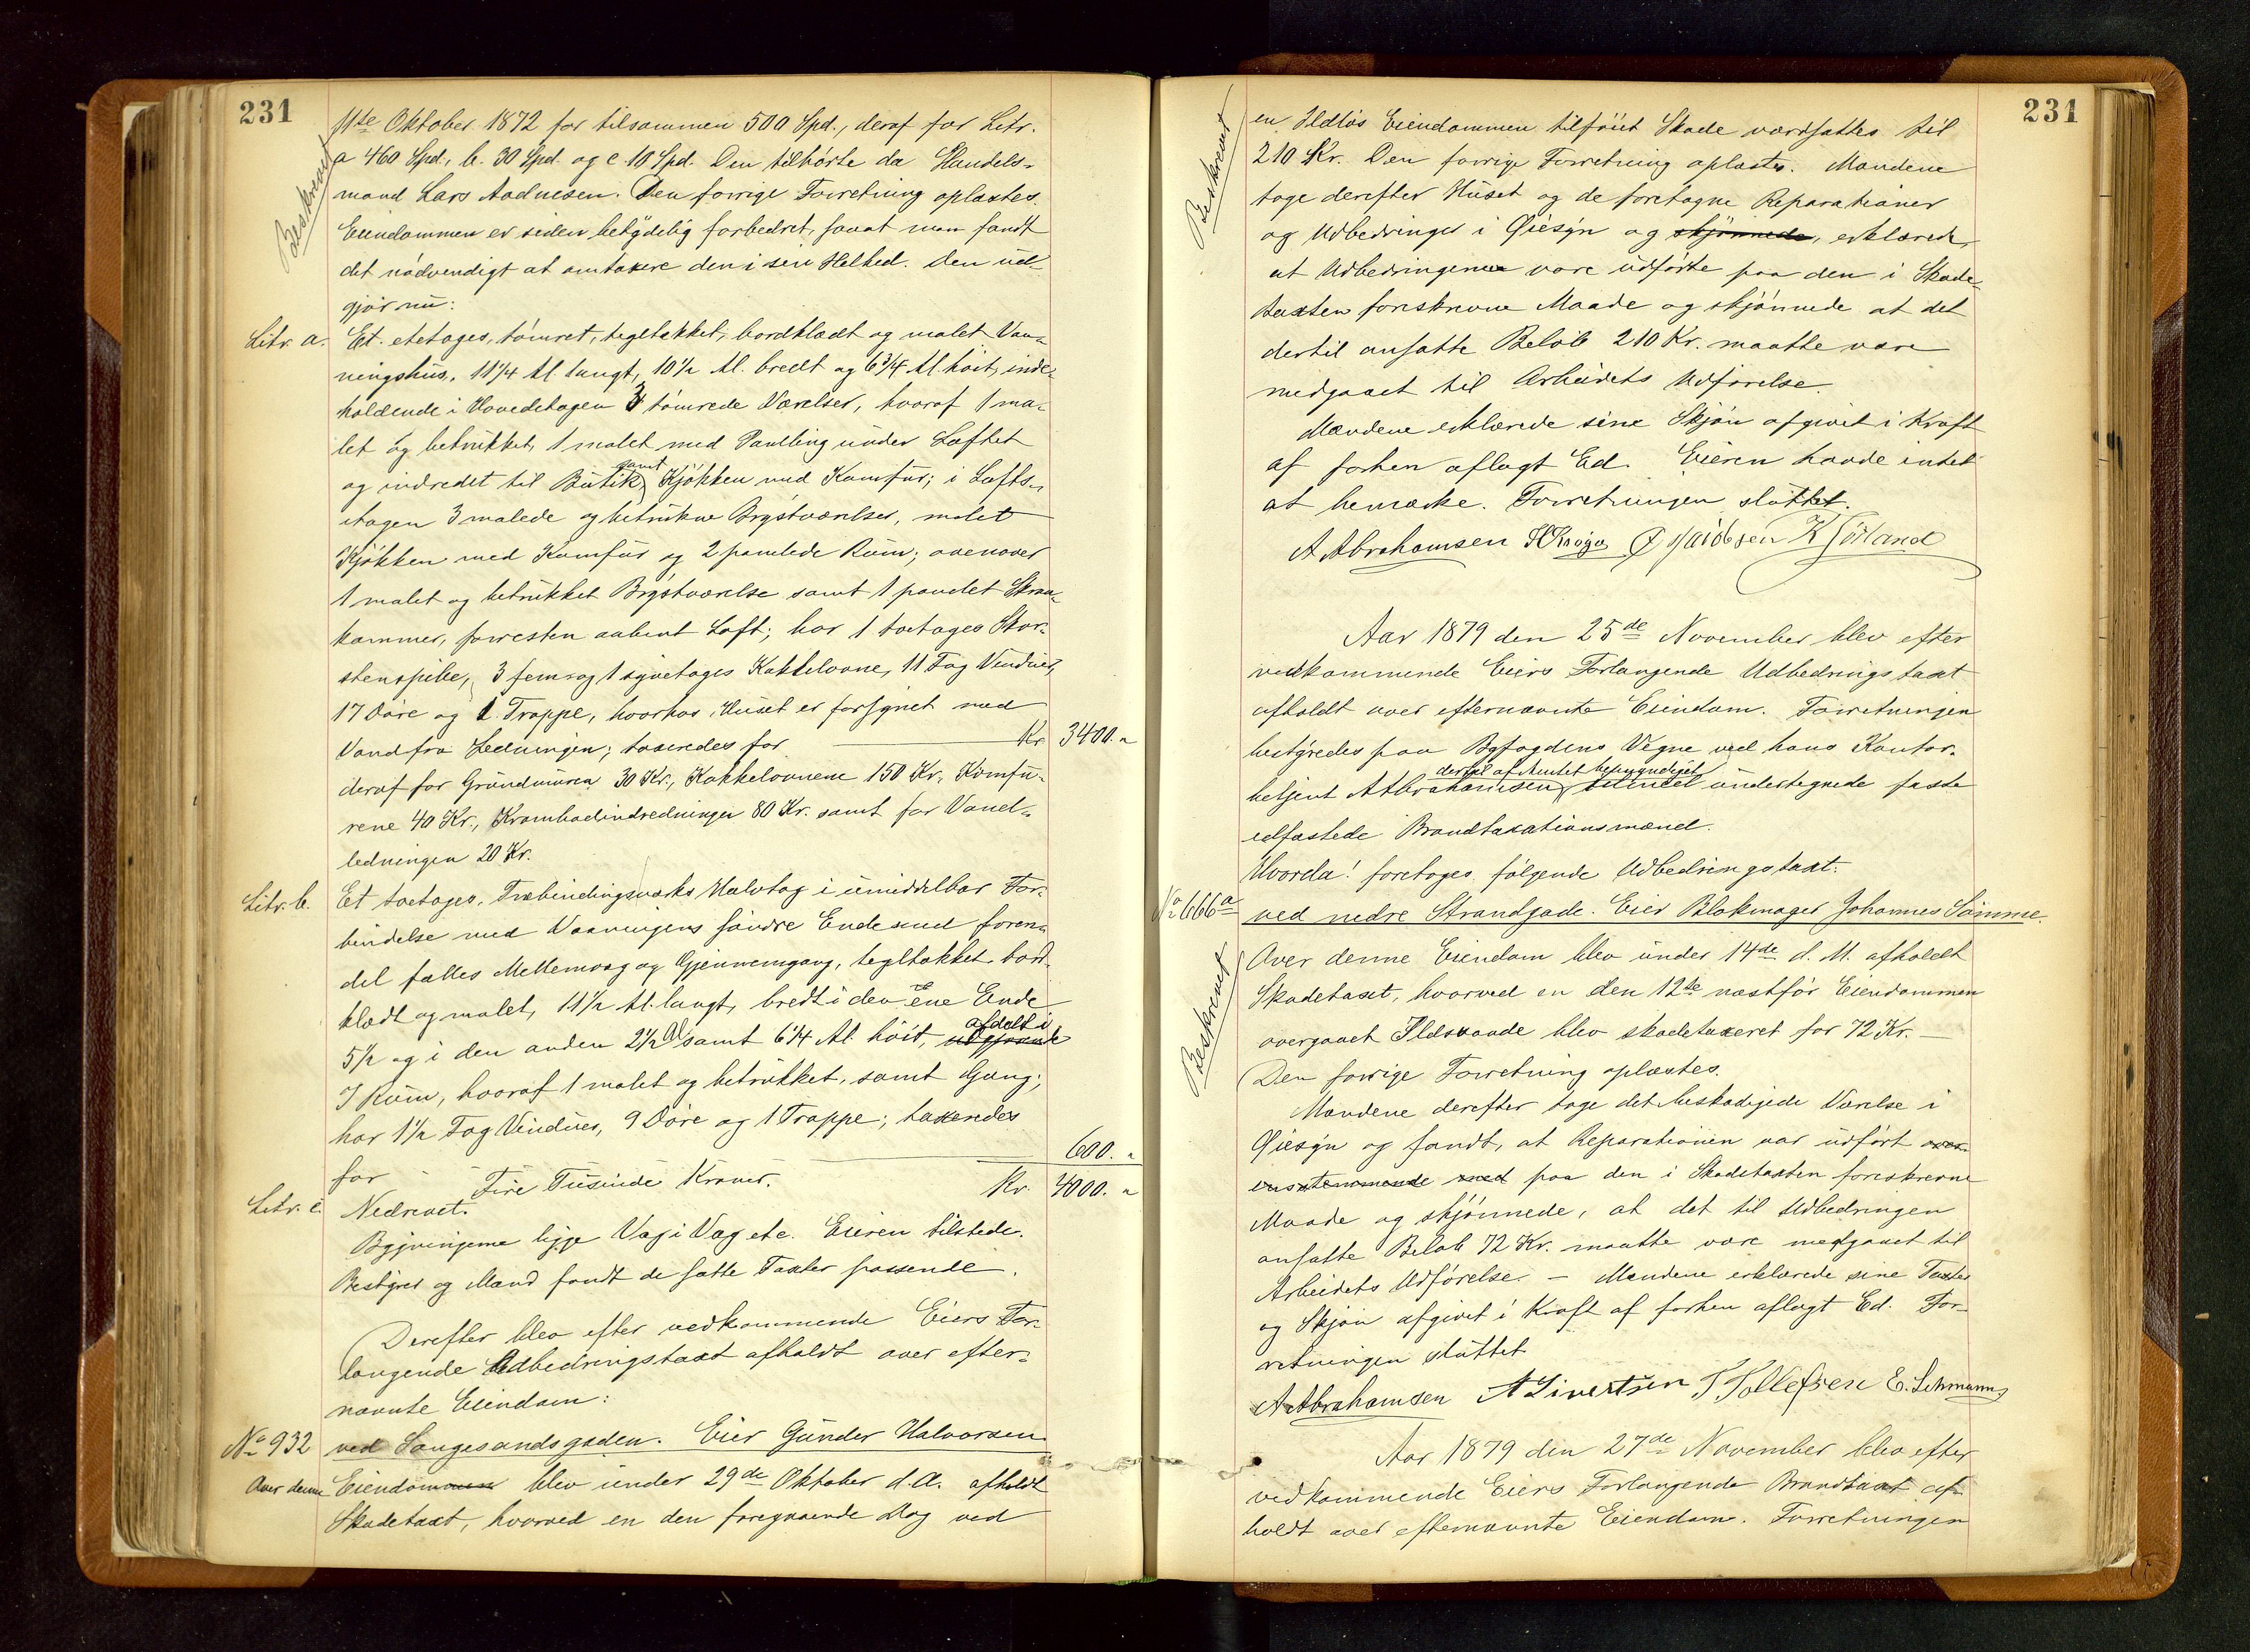 231
Beskrevet
11te Oktober 1872 for tilsammen 500 Spd., deraf for Litr.
a 460 Spd., b. 30 Spd. og c. 10 Spd. Den tilhørte da Handels-
mand Lars Aadnesen. Den forrige Forretning oplæstes.
Eiendommen er siden betydelig forbedret, saaat man fandt
det nødvendigt at omtaxere den i sin Helhed. Den ud-
gjør nu:
Litr. a. Et etetages, tømret, tegltækket, bordklædt og malet Vaa-
ningshus, 11 1/4 Al. langt, 10 1/2 Al. bredt og 6 3/4 Al. høit, inde-
holdende i Hovedetagen 3 tømrede Værelser, hvoraf 1 ma-
let og betrukket, 1 malet med Paneling under Loftet
og indredet til Butik samt Kjøkken med Komfur; i Lofts-
etagen 3 malede og betrukne Brystværelser, malet
Kjøkken med Komfur og 2 panelede Rum; ovenover
1 malet og betrukket Brystværelse samt 1 panelet Skraa-
kammer, forresten aabent Loft; har 1 toetages Skor-
stenspibe, 3 fem- og 1 syvetages Kakkelovne, 11 Fag Vinduer,
17 Døre og 2 Trappe, hvorhos Huset er forsynet med
Vand fra Ledningen; taxeredes for Kr. 3400. "
deraf for Grundmuren 30 Kr., Kakkelovnene 150 Kr., Komfu-
rene 40 Kr., Krambodindredningen 80 Kr. samt for Vand-
ledningen 20 Kr.
Litr. b. Et toetages, Træbindingsværks Halvtag i umiddelbar For-
bindelse med Vaaningens søndre Ende med foren-
del fælles Mellemvæg og Gjennemgang, tegltækket, bord-
klædt og malet, 11 1/2 Al. langt, bredt i den ene Ende
5 1/2 og i den anden 2 1/2 Al. samt 6 1/4 Al. høit, udgjørende afdelt i
7 Rum, hvoraf 1 malet og betrukket, samt Gang;
har 1 1/2 Fag Vinduer, 9 Døre og 1 Trappe; taxeredes
for 600. "
Fire Tusinde Kroner. Kr. 4000. "
Litr. c. Nedrevet.
Bygningerne ligge Væg i Væg etc. Eieren tilstede.
Bestyrer og Mænd fandt de satte Taxter passende.
Derefter blev efter vedkommende Eiers For-
langende Udbedringstaxt afholdt over efter-
nævnte Eiendom:
No 932 ved Langesandsgaden. Eier Gunder Halvorsen.
Over denne Eiendommen blev under 29de Oktober d. A. afholdt
Skadetaxt, hvorved en den foregaaende Dag ved
231
Beskrevet
en Ildløs Eiendommen tilføiet Skade værdsattes til
210 Kr. Den forrige Forretning oplæstes. Mændene
toge derefter Huset og de foretagne Reparationer
og Udbedringer i Øiesyn og skjønnede, erklærede,
at Udbedringerne vare udførte paa den i Skade-
taxten foreskrevne Maade og skjønnede at det
dertil ansatte Beløb 210 Kr. maatte være
medgaaet til Arbeidets Udførelse.
Mændene erklærede sine Skjøn afgivet i Kraft
af forhen aflagt Ed. Eieren havde intet
at bemærke. Forretningen sluttet.
A Abrahamsen H Krøger J Jacobsen K Sørland
Aar 1879 den 25de November blev efter
vedkommende Eiers Forlangende Udbedringstaxt
afholdt over efternævnte Eiendom. Forretningen
bestyredes paa Byfogdens Vegne ved hans Kontor-
betjent A Abrahamsen, dertil af Amtet bemyndiget undertegnede faste
edfæstede Brandtaxationsmænd.
Hvorda! foretoges følgende Udbedringstaxt:
No 666a ved nedre Strandgade. Eier Blokmager Johannes Sømme.
Beskrevet
Over denne Eiendom blev under 14de d. M. afholdt
Skadetaxt, hvorved en den 12te næstfør Eiendommen
overgaaet Ildsvaade blev skadetaxeret for 72 Kr. —
Den forrige Forretning oplæstes.
Mændene derefter toge det beskadigede Værelse i
Øiesyn og fandt, at Reparationen var udført over-
ensstemmende med paa den i Skadetaxten foreskrevne
Maade og skjønnede, at det til Udbedringen
ansatte Beløb 72 Kr. maatte være medgaaet til
Arbeidets Udførelse. — Mændene erklærede sine Taxter
og Skjøn afgivet i Kraft af forhen aflagt Ed. For-
retningen sluttet.
A Abrahamsen A Sivertsen T Tollefsen E. Lehmann
Aar 1879 den 27de November blev efter
vedkommende Eiers Forlangende Brandtaxt af-
holdt over efternævnte Eiendom. Forretningen